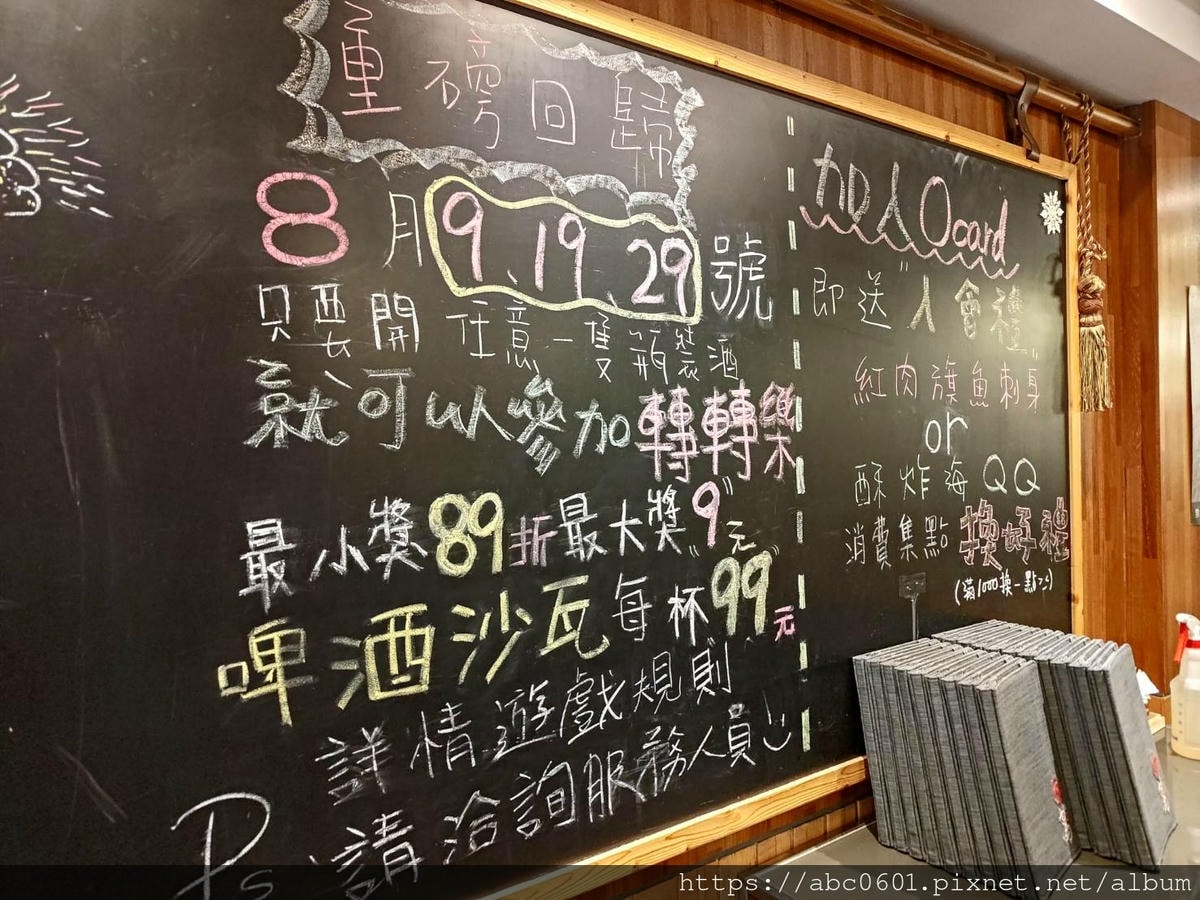 重磅回歸
8月9、19、29號
只要開任意一隻瓶裝酒
就可以參加轉轉樂
最小獎89折最大獎"9"元
啤酒沙瓦每杯99元
詳情遊戲規則
Ps請洽詢服務人員
加入Ocard
即送"入會禮"
紅肉旗魚刺身
or
酥炸海QQ
消費集點換好禮
(滿1000換一點)
https://abc0601.pixnet.net/album